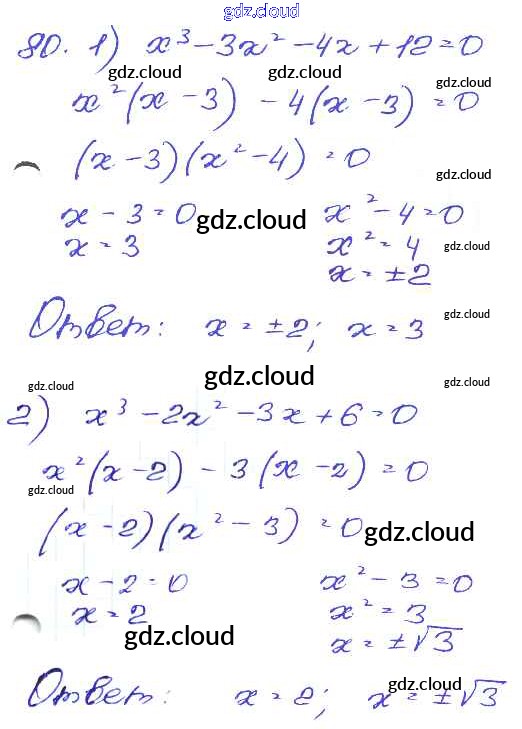 gdz.cloud
80. 1) x³ - 3x² - 4x + 12 = 0
gdz.cloud gdz.cloud
x²(x - 3) - 4(x - 3) = 0
gdz.cloud gdz.cloud
(x - 3)(x² - 4) = 0
gdz.cloud
x - 3 = 0 gdz.cloud x² - 4 = 0
x = 3 x² = 4 gdz.cloud
x = ±2
Ответ: x = ±2; x = 3
gdz.cloud
gdz.cloud
gdz.cloud gdz.cloud
2) x³ - 2x² - 3x + 6 = 0
x²(x - 2) - 3(x - 2) = 0
gdz.cloud
(x - 2)(x² - 3) = 0 gdz.cloud
x - 2 = 0 x² - 3 = 0
x = 2 x² = 3
gdz.cloud x = ±√3
Ответ: x = 2; x = ±√3
gdz.cloud